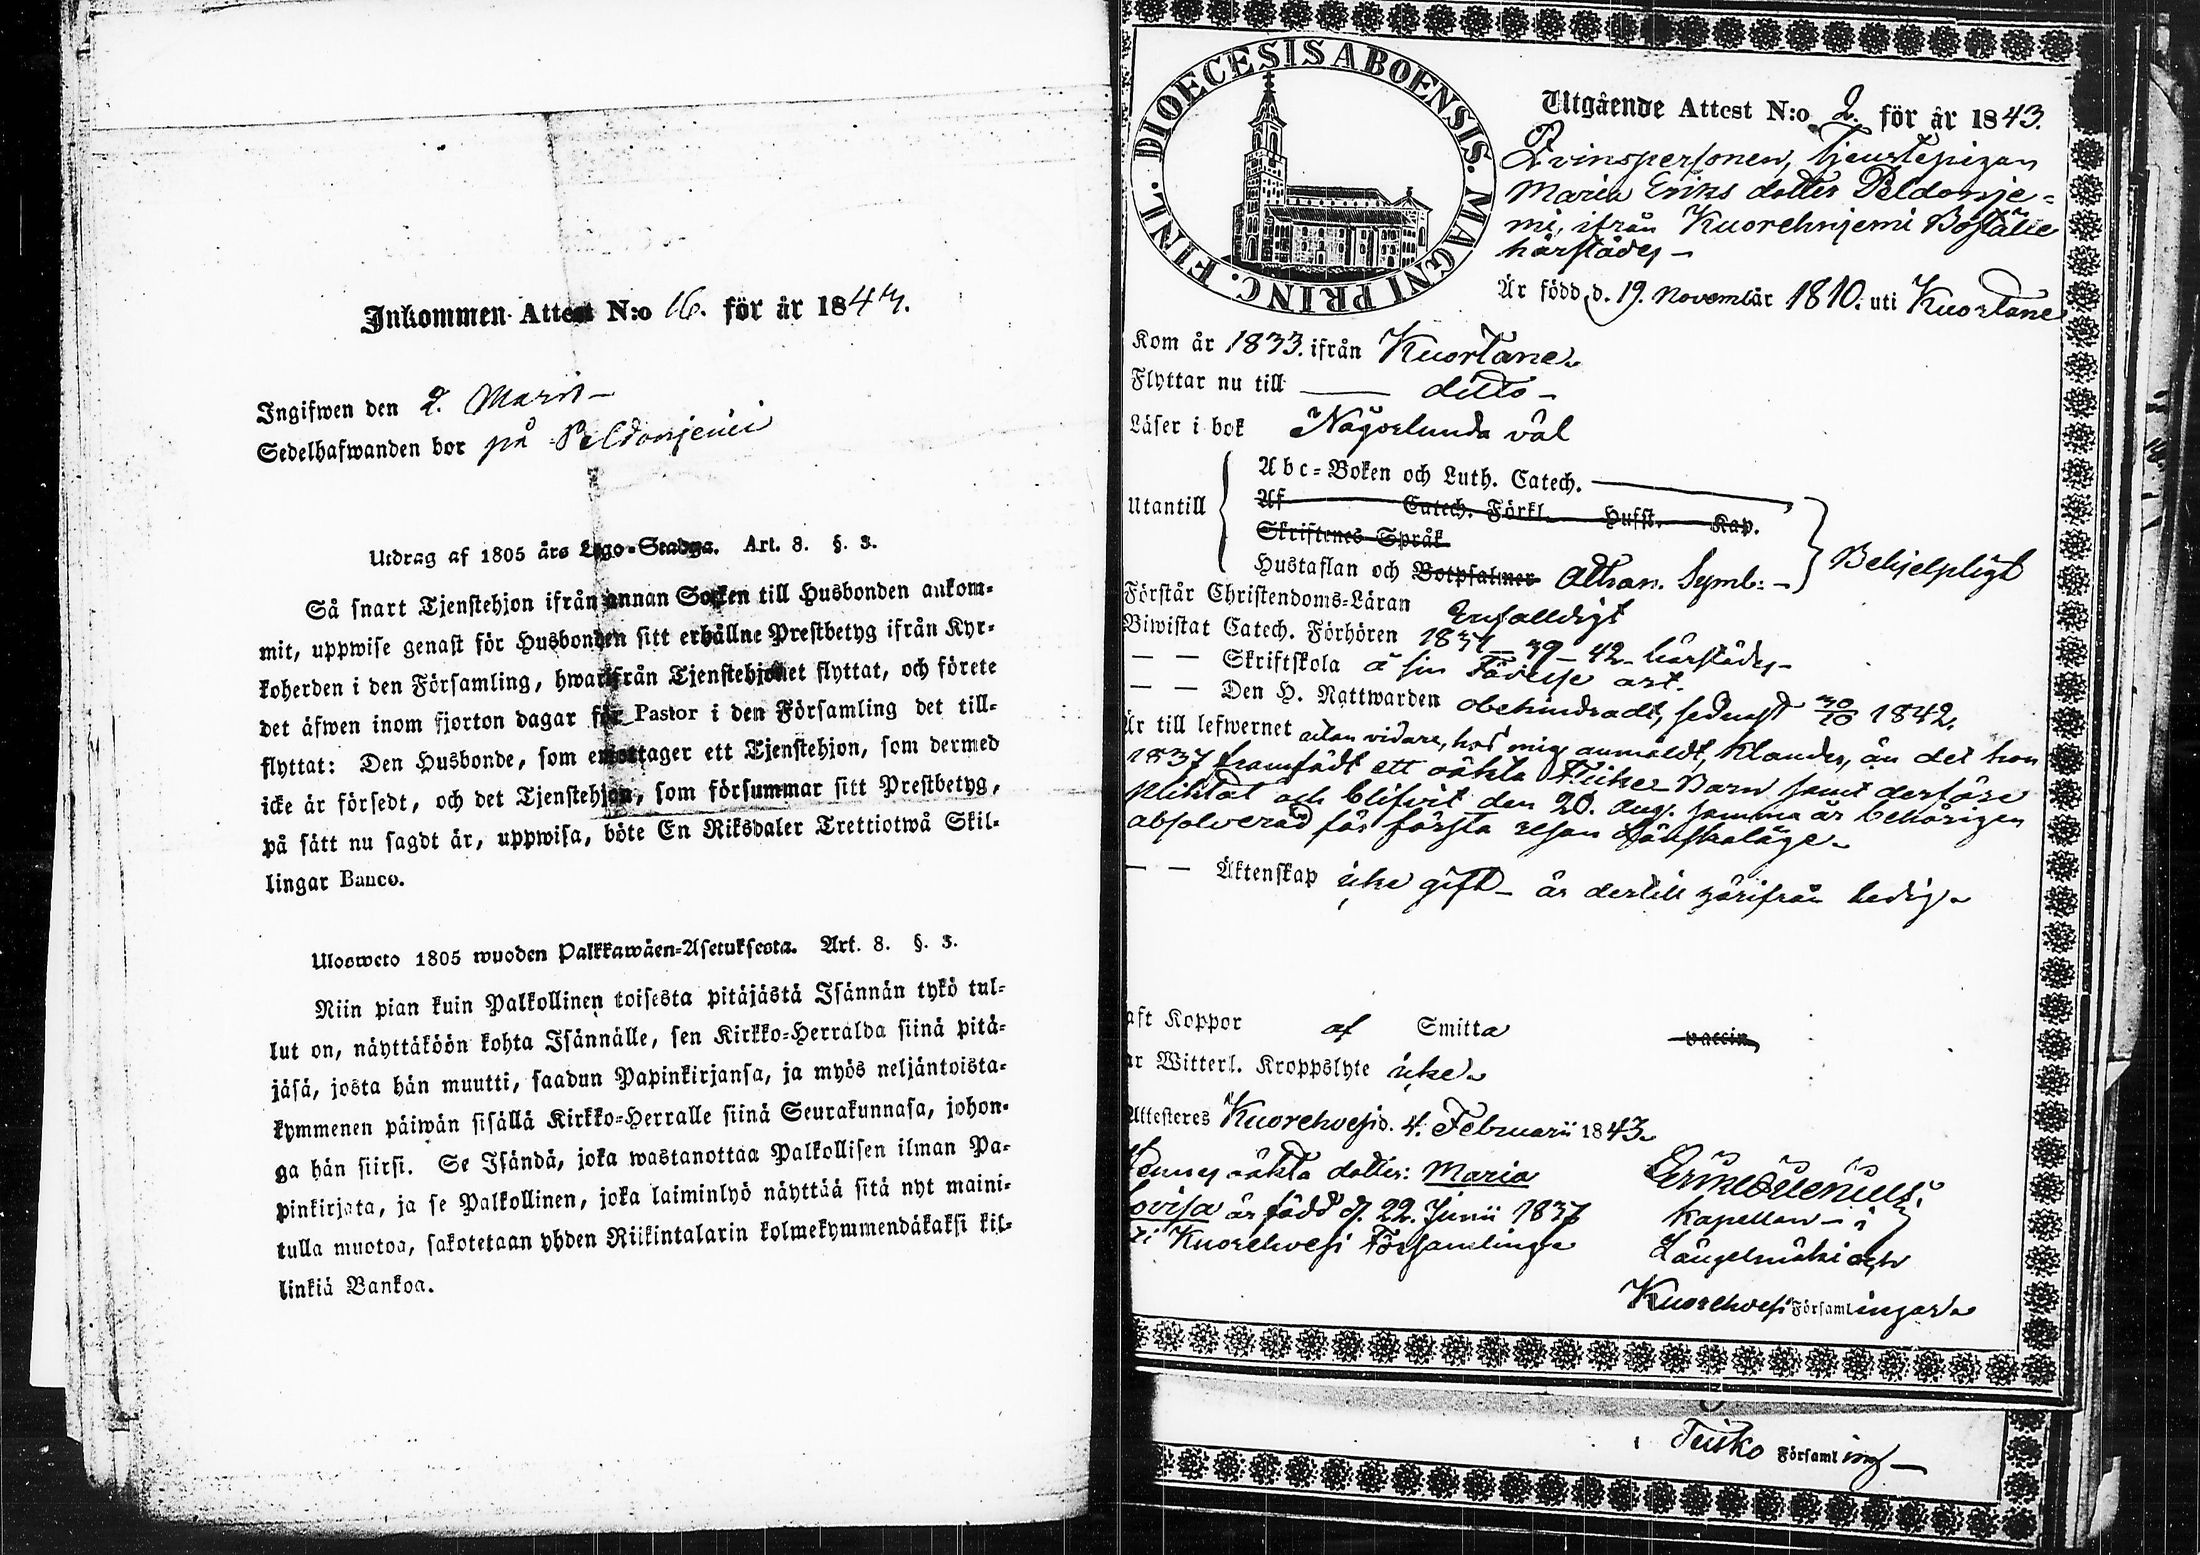 Inkommen Attest N:o 16. för år 1843.
Ingifwen den 2. Martii –
Sedelhafwanden bor på Peldonjemi
Utdrag af 1805 års Lego-Stadga. Art. 8. §. 3.
Så snart Tjenstehjon ifrån annan Socken till Husbonden ankom-
mit, uppwise genast för Husbonden sitt erhållne Prestbetyg ifrån Kyr-
koherden i den Församling, hwarifrån Tjenstehjonet flyttat, och förete
det äfwen inom fjorton dagar för Pastor i den Församling det till-
flyttat: Den Husbonde, som emottager ett Tjenstehjon, som dermed
icke är försedt, och det Tjenstehjon, som försummar sitt Prestbetyg,
på sätt nu sagdt är, uppwisa, böte En Riksdaler Trettiotwå Skil-
lingar Banco.
Ulosweto 1805 wuoden Palkkawäen-Asetuksesta. Art. 8. §. 3.
Niin pian kuin Palkollinen toisesta pitäjästä Isännän tykö tul-
lut on, näyttäköön kohta Isännälle, sen Kirkko-Herralda siinä pitä-
jäsä, josta hän muutti, saadun Papinkirjansa, ja myös neljäntoista-
kymmenen päiwän sisällä Kirkko-Herralle siinä Seurakunnasa, johon-
ga hän siirsi. Se Isändä, joka wastanottaa Palkollisen ilman Pa-
pinkirjata, ja se Palkollinen, joka laiminlyö näyttää sitä nyt maini-
tulla muotoa, sakotetaan yhden Riikintalarin kolmekymmendäkaksi kil-
linkiä Bankoa.
FINL. DIOECESIS ABOENSIS. MAGNI PRINC.
Utgående Attest N:o 2. för år 1843.
Qvinspersonen, Tjenstepigan
Maria Eriks dotter Peldonje-
mi, ifrån Kuorehnjemi Boställe
härstädes –
Är född d. 19. November 1810. uti Kuortane
Kom år 1833. ifrån Kuortane
Flyttar nu till — ditto –
Läser i bok Någorlunda väl
Utantill
Abc-Boken och Luth. Catech.
Af Catech. Förkl. Hufst. Kap.
Skriftenes Språk
Hustaflan och Botpsalmer Athan. Symb: –
Behjelpligt
Förstår Christendoms-Läran Enfalldigt
Biwistat Catech. Förhören 1837 – 39 – 42 – härstädes –
— — Skriftskola å sin Födelse ort.
— — Den H. Nattwarden obehindradt, sednast 30/10 1842.
Är till lefwernet utan vidare, hos mig anmäldt, klander, än det hon
1837 framfödt ett oäkta Flicke Barn samt derföre
pliktat och blifvit den 20. Aug. samma år behörigen
absolverad för första resan Lönskaläge –
— — Äktenskap icke gift – är dertill härifrån ledig –
aft Koppor af Smitta vaccin
ar Witterl. Kroppslyte icke
Attesteres Kuorehvesi d. 4. Februarii 1843
Dennes oäkta dotter: Maria
Lovisa är född d. 22. Junii 1837
uti Kuorehvesi Församling
Kapellan – i
Längelmäki och
Kuorehvesi Församlingar
i Teisko Församling –